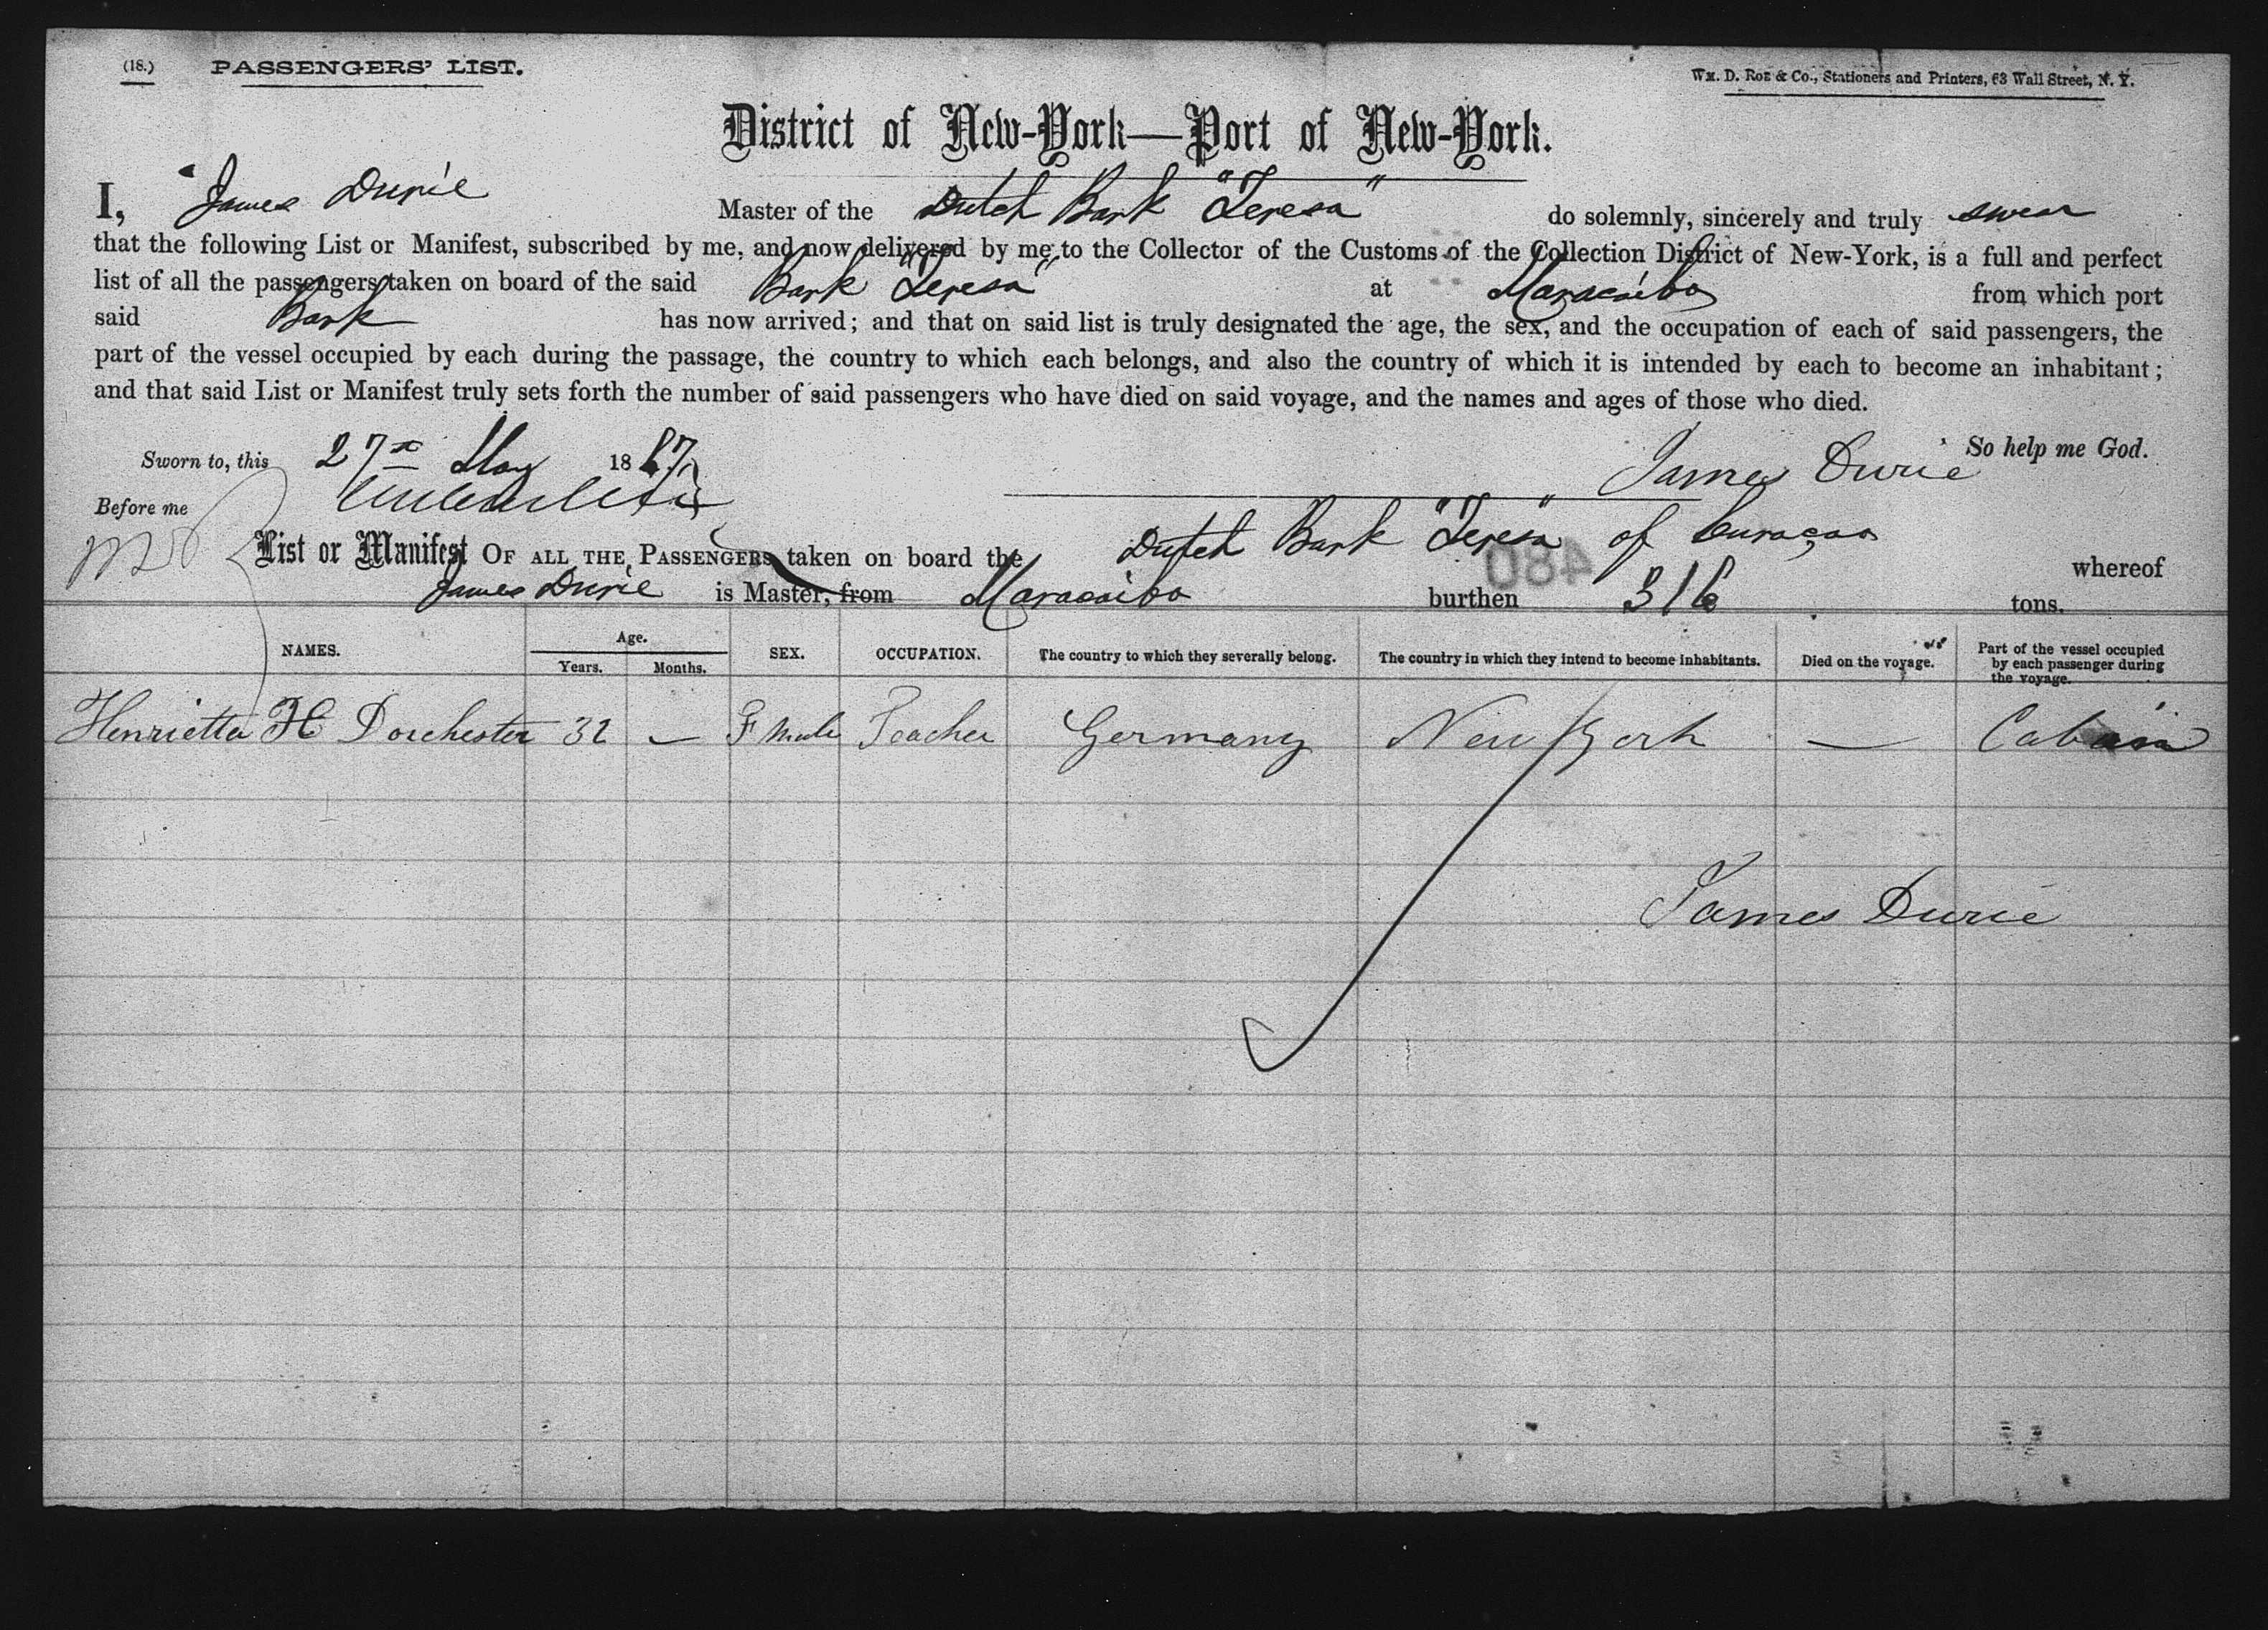 (18.) PASSENGERS' LIST. Wm. D. Roe & Co., Stationers and Printers, 63 Wall Street, N. Y.
District of New-York—Port of New-York.
I, James Durie Master of the Dutch Bark "Teresa" do solemnly, sincerely and truly swear
that the following List or Manifest, subscribed by me, and now delivered by me to the Collector of the Customs of the Collection District of New-York, is a full and perfect
list of all the passengers taken on board of the said Bark "Teresa" at Maracaibo from which port
said Bark has now arrived; and that on said list is truly designated the age, the sex, and the occupation of each of said passengers, the
part of the vessel occupied by each during the passage, the country to which each belongs, and also the country of which it is intended by each to become an inhabitant;
and that said List or Manifest truly sets forth the number of said passengers who have died on said voyage, and the names and ages of those who died.
So help me God.
Sworn to, this 27th May 1887 James Durie
Before me
List or Manifest OF ALL THE PASSENGERS taken on board the Dutch Bark "Teresa" of Curaçao whereof
James Durie is Master, from Maracaibo burthen 316 tons.
480
NAMES. Age. Years. Months. SEX. OCCUPATION. The country to which they severally belong. The country in which they intend to become inhabitants. Died on the voyage. Part of the vessel occupied by each passenger during the voyage.
Henrietta H Dorchester 32 — F male Teacher Germany New York — Cabin
James Durie